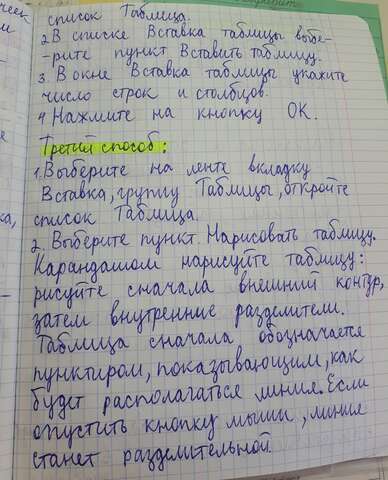 список Таблица.
2. В списке Вставка таблицы выбе-
-рите пункт Вставить таблицу.
3. В окне Вставка таблицы укажите
число строк и столбцов.
4 Нажмите на кнопку ОК.
Третий способ:
1. Выберите на ленте вкладку
Вставка, группу Таблицы, откройте
список Таблица.
2. Выберите пункт Нарисовать таблицу.
Карандашом нарисуйте таблицу:
рисуйте сначала внешний контур,
затем внутренние разделители.
Таблица сначала обозначается
пунктиром, показывающим, как
будет располагаться линия. Если
опустить кнопку мыши, линия
станет разделительной.